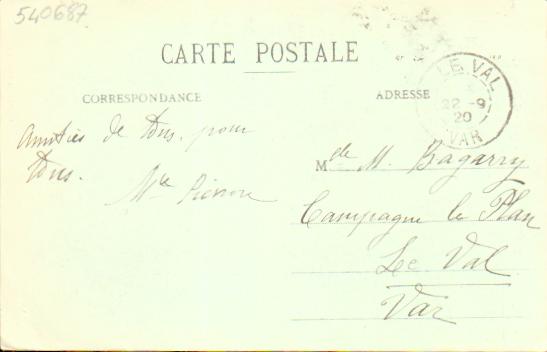 540687
CARTE POSTALE
CORRESPONDANCE
ADRESSE
LE VAL
22-9
20
VAR
Amitiés de tous pour
tous.
Mlle
Mde M. Bagarry
Campagne le Plan
Le Val
Var